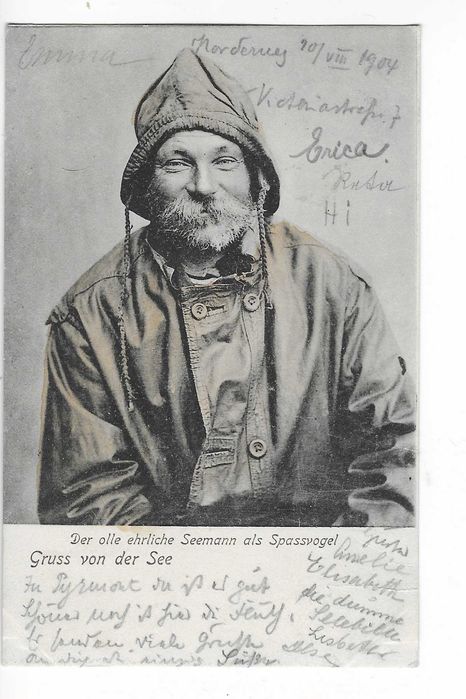 Emma
Norderney 10/VIII 1904
Victoriastraße 7
Erica.
Reta
Hi
Der olle ehrliche Seemann als Spassvogel
Gruss von der See
In Pyrmont da ist es gut
Schöner noch ist hier die
Es senden viele Grüße
Süße
Amelie
Elisabeth
die dumme
Lisbeth
Else